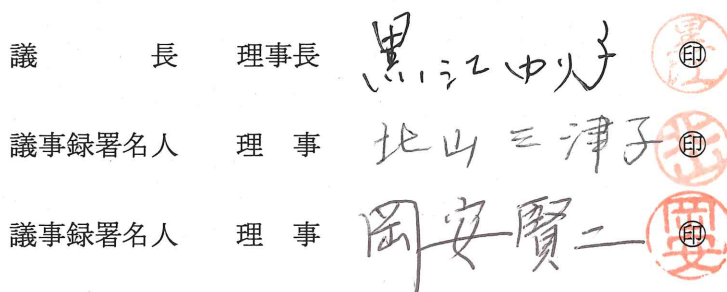 議長 理事長 黒江ゆり子 ㊞
議事録署名人 理事 北山三津子 ㊞
議事録署名人 理事 岡安賢二 ㊞